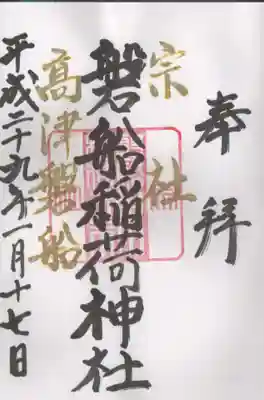 奉拝
宗社
磐船稲荷神社
高津磐船
平成二十九年一月十七日